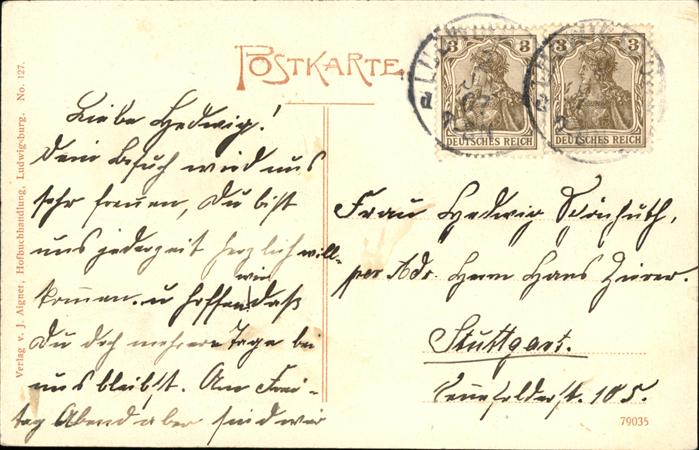 POSTKARTE.
LUDWIGSBURG
3 3
DEUTSCHES REICH
3 3
DEUTSCHES REICH
Verlag v. J. Aigner, Hofbuchhandlung, Ludwigsburg. No. 127.
Liebe Hedwig!
Dein Besuch wird uns
sehr freuen, Du bist
uns jederzeit herzlich will-
kommen. u hoffen wir daß
Du doch mehrere Tage bei
uns bleibst. Am Frei-
tag Abend aber sind wir
Frau Hedwig
per Adr. Herrn Hans
Stuttgart.
105.
79035